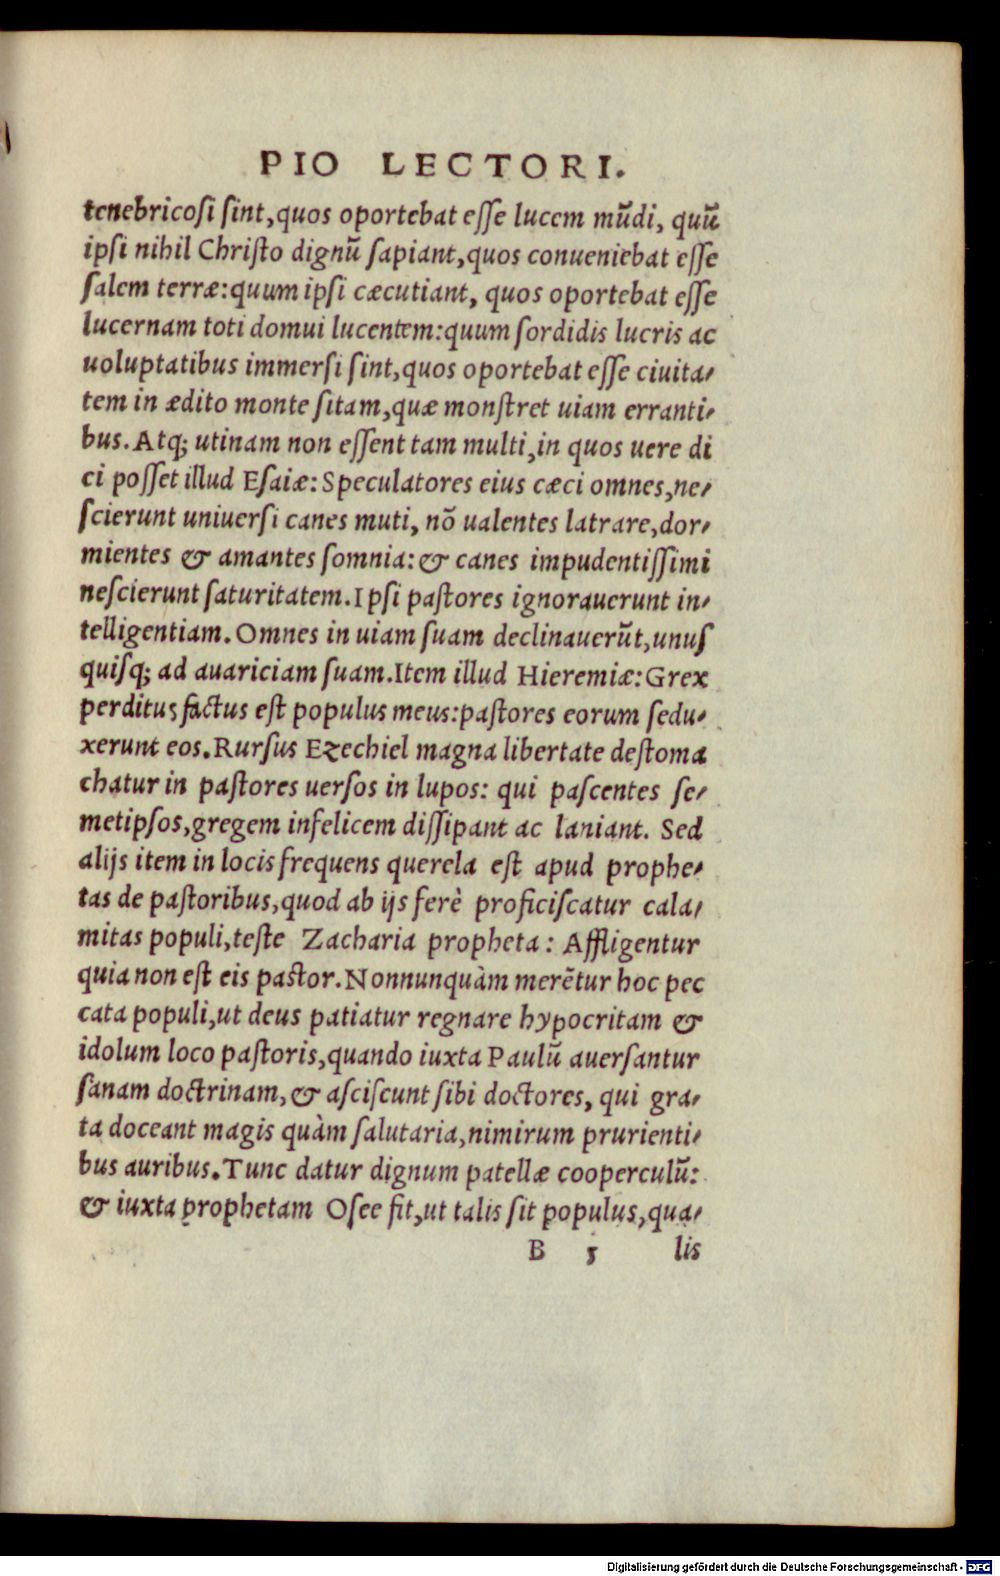 PIO LECTORI.
tenebricosi sint, quos oportebat esse lucem mũdi, quũ
ipsi nihil Christo dignũ sapiant, quos conueniebat esse
salem terræ: quum ipsi cæcutiant, quos oportebat esse
lucernam toti domui lucentem: quum sordidis lucris ac
uoluptatibus immersi sint, quos oportebat esse ciuita-
tem in ædito monte sitam, quæ monstret uiam erranti-
bus. Atq; utinam non essent tam multi, in quos uere di
ci posset illud Esaiæ: Speculatores eius cæci omnes, ne-
scierunt uniuersi canes muti, nõ ualentes latrare, dor-
mientes & amantes somnia: & canes impudentissimi
nescierunt saturitatem. Ipsi pastores ignorauerunt in-
telligentiam. Omnes in uiam suam declinauerũt, unus
quisq; ad auariciam suam. Item illud Hieremiæ: Grex
perditus factus est populus meus: pastores eorum sedu-
xerunt eos. Rursus Ezechiel magna libertate destoma
chatur in pastores uersos in lupos: qui pascentes se-
metipsos, gregem infelicem dissipant ac laniant. Sed
alijs item in locis frequens querela est apud prophe-
tas de pastoribus, quod ab ijs ferè proficiscatur cala-
mitas populi, teste Zacharia propheta: Affligentur
quia non est eis pastor. Nonnunquàm merẽtur hoc pec
cata populi, ut deus patiatur regnare hypocritam &
idolum loco pastoris, quando iuxta Paulũ auersantur
sanam doctrinam, & asciscunt sibi doctores, qui gra-
ta doceant magis quàm salutaria, nimirum prurienti-
bus auribus. Tunc datur dignum patellæ cooperculũ:
& iuxta prophetam Osee fit, ut talis sit populus, qua-
B 5 lis
Digitalisierung gefördert durch die Deutsche Forschungsgemeinschaft - DFG